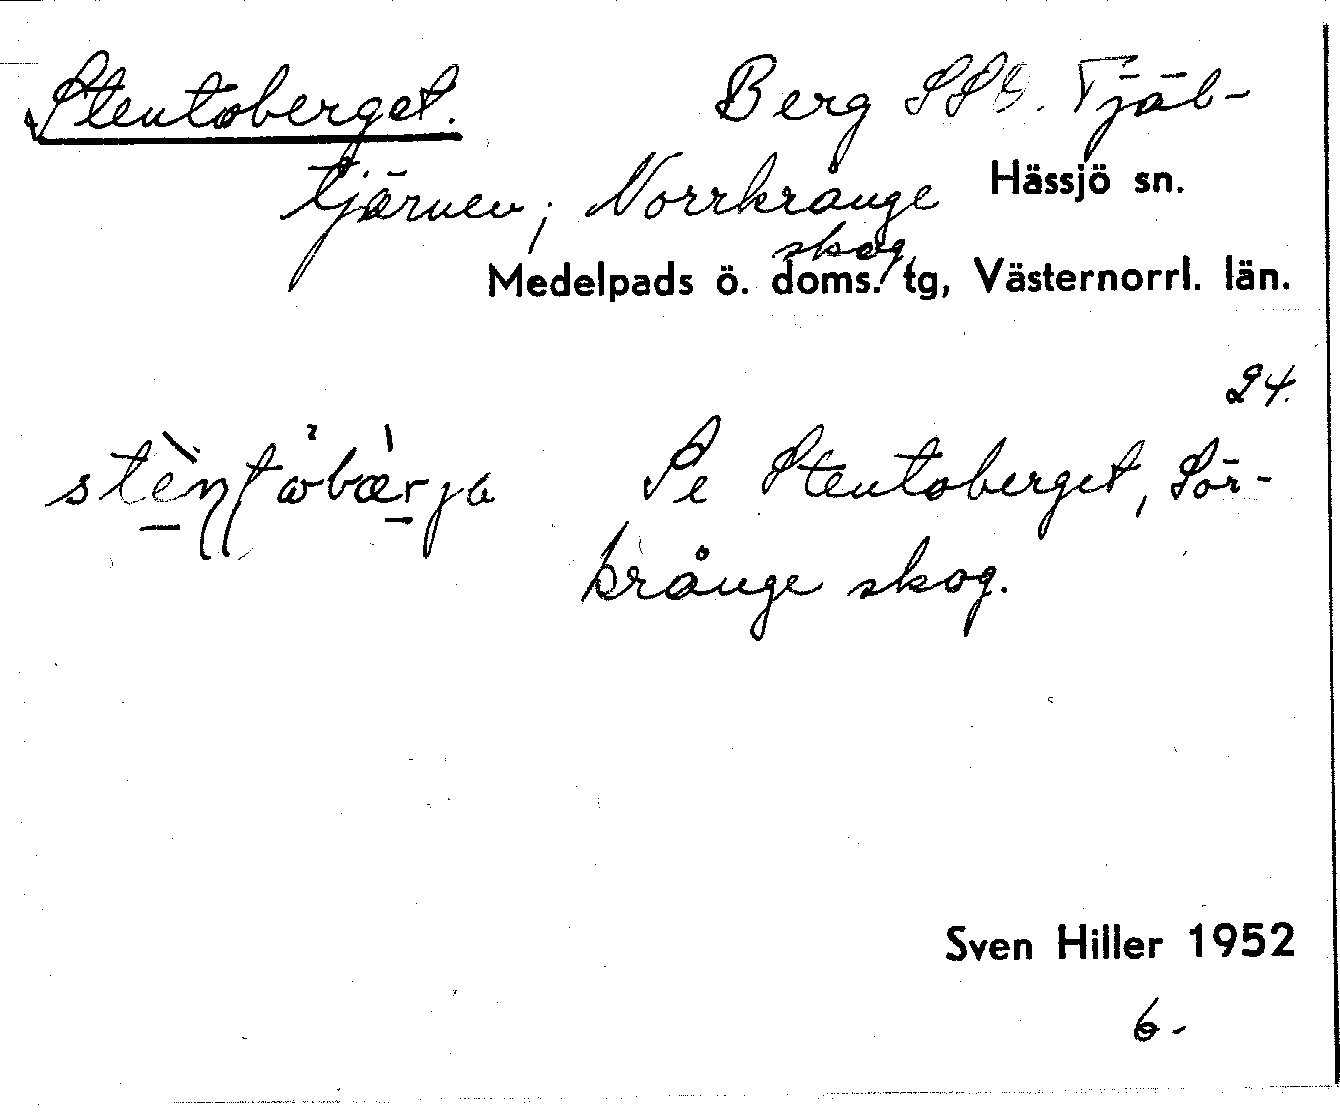 Stentoberget. Berg SSO. Tjäl-
tjärnen, Norrkrånge Hässjö sn.
skog
Medelpads ö. doms. tg, Västernorrl. län.
24.
Se Stentoberget, Sör-
krånge skog.
Sven Hiller 1952
6-